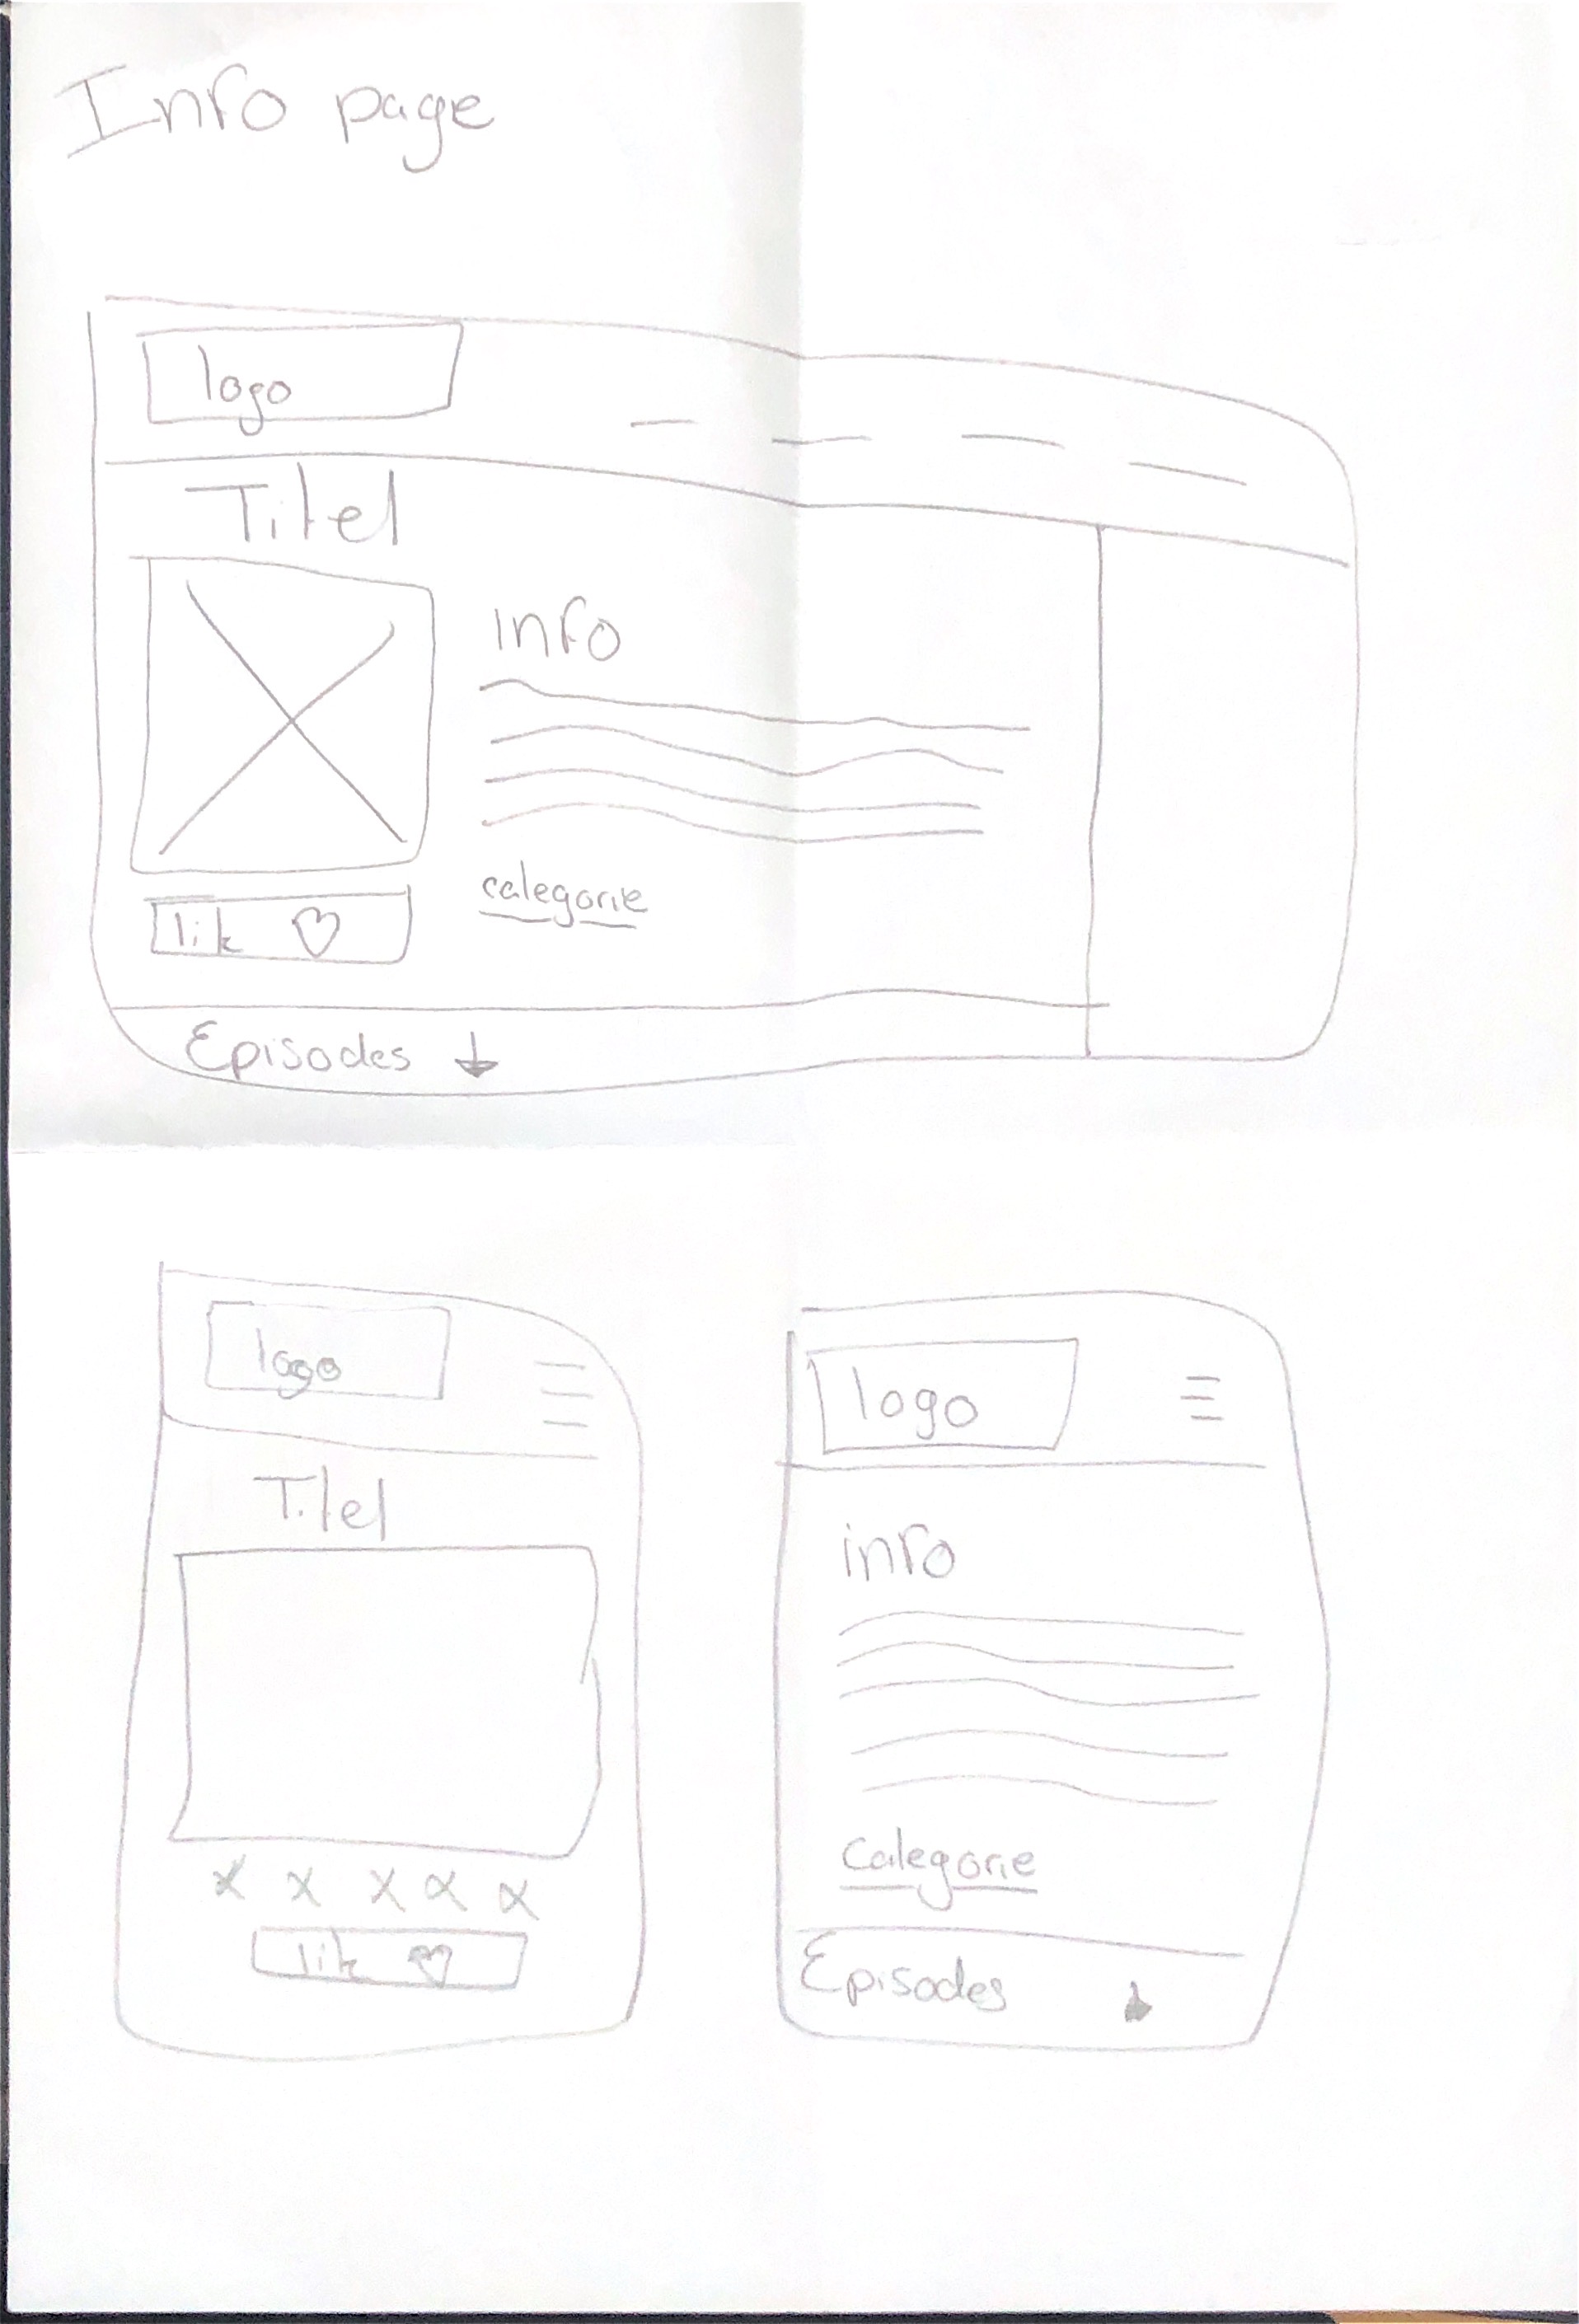 Info page
logo
Titel
info
categorie
lik ♡
Episodes ↓
logo
Titel
x x x x x
lik ♡
logo
info
Categorie
Episodes